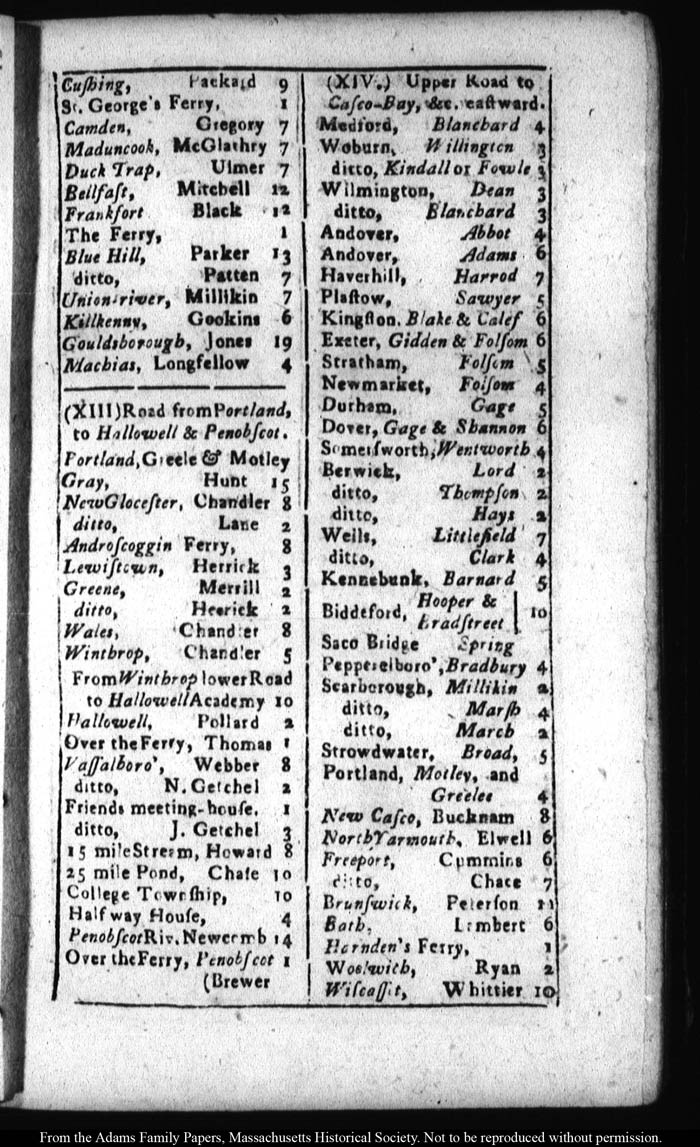 Cuſhing, Packard 9
St. George's Ferry, 1
Camden, Gregory 7
Maduncook, McGlathry 7
Duck Trap, Ulmer 7
Bellfaſt, Mitchell 12
Frankfort Black 12
The Ferry, 1
Blue Hill, Parker 13
ditto, Patten 7
Union-river, Millikin 7
Killkenny, Gookins 6
Gouldsborough, Jones 19
Machias, Longfellow 4
(XIII) Road from Portland,
to Hallowell & Penobſcot.
Portland, Greele & Motley
Gray, Hunt 15
New Gloceſter, Chandler 8
ditto, Lane 2
Androſcoggin Ferry, 8
Lewiſtown, Herrick 3
Greene, Merrill 2
ditto, Herrick 2
Wales, Chandler 8
Winthrop, Chandler 5
From Winthrop lower Road
to Hallowell Academy 10
Hallowell, Pollard 2
Over the Ferry, Thomas 1
Vaſſalboro', Webber 8
ditto, N. Getchel 2
Friends meeting-houſe, 1
ditto, J. Getchel 3
15 mile Stream, Howard 8
25 mile Pond, Chaſe 10
College Townſhip, 10
Half way Houſe, 4
Penobſcot Riv. Newcrmb 14
Over the Ferry, Penobſcot 1
(Brewer
(XIV.) Upper Road to
Caſco-Bay, &c. eaſtward.
Medford, Blanchard 4
Woburn, Willington 3
ditto, Kindall or Fowle 3
Wilmington, Dean 3
ditto, Blanchard 3
Andover, Abbot 4
Andover, Adams 6
Haverhill, Harrod 7
Plaſtow, Sawyer 5
Kingſton, Blake & Calef 6
Exeter, Gidden & Folſom 6
Stratham, Folſom 5
Newmarket, Folſom 4
Durham, Gage 5
Dover, Gage & Shannon 6
Somerſworth, Wentworth 4
Berwick, Lord 2
ditto, Thompſon 2
ditto, Hays 2
Wells, Littlefield 7
ditto, Clark 4
Kennebunk, Barnard 5
Biddeford, Hooper & Bradſtreet 10
Saco Bridge Spring
Pepperelboro', Bradbury 4
Scarborough, Millikin 2
ditto, Marſh 4
ditto, March 2
Strowdwater, Broad, 5
Portland, Motley, and
Greelee 4
New Caſco, Bucknam 8
North Yarmouth, Elwell 6
Freeport, Cummins 6
ditto, Chace 7
Brunſwick, Peterſon 11
Bath, Lambert 6
Harnden's Ferry, 1
Woolwich, Ryan 2
Wiſcaſſit, Whittier 10
From the Adams Family Papers, Massachusetts Historical Society. Not to be reproduced without permission.